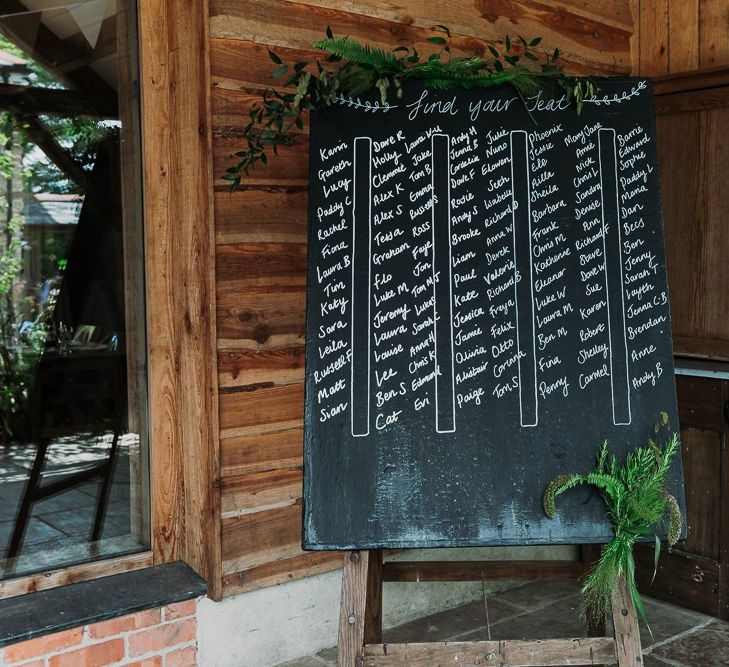 find your Seat
Karin
Gareth
Lucy
Paddy C
Rachel
Fiona
Laura B
Tim
Katy
Sara
Leila
Russell F
Matt
Sian
Dave R
Holly
Clemmie
Alex K
Alex S
Tessa
Graham
Flo
Luke M
Jeremy
Laura
Louise
Lee
Ben S
Cat
Laura
Jake
Tom B
Emma
Russell S
Ross
Faye
Jon
Tom M
Lukas
Sarah
Anna H
Chris K
Edmond
Evi
Andy H
Jenna B
Cordelia
Dave F
Rosie
Andy S
Brooke
Liam
Paul
Kate
Jessica
Jamie
Olivia
Alistair
Paige
Julie
Nuno
Elowen
Seth
Issabelle
Richard
Anna W
Derek
Valerie
Richard B
Freya
Felix
Otto
Corinna
Tom S
Phoenix
Jessie
Elo
Rilla
Sheila
Barbara
Frank
Chris M
Katherine
Eleanor
Luke W
Laura M
Ben M
Fina
Penny
Mary Jane
Anne
Nick
Chris L
Sandra
Denise
Ann
Richard F
Steve
Dave W
Sue
Karen
Robert
Shelley
Carmel
Barrie
Edward
Sophie
Paddy L
Maria
Dan
Becs
Ben
Jenny
Sarah T
Layth
Jenna C-B
Brendan
Anne
Andy B